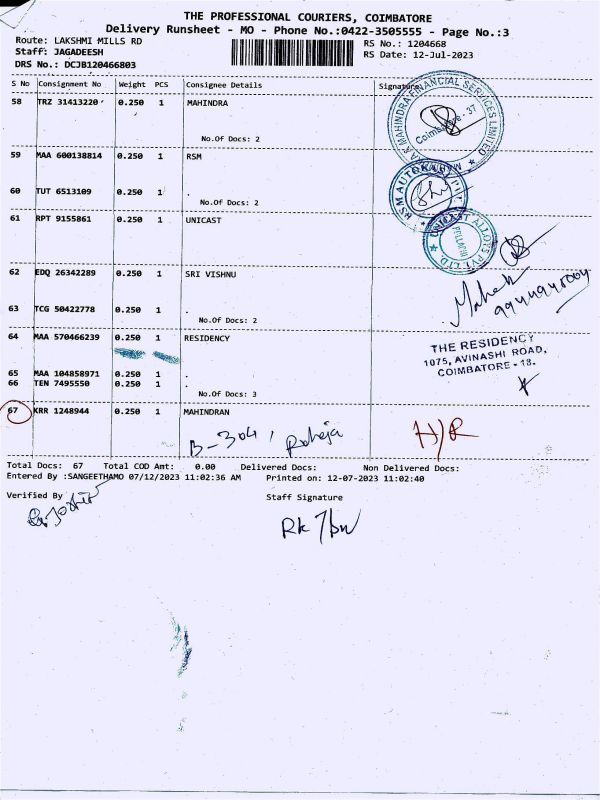 THE PROFESSIONAL COURIERS, COIMBATORE
Delivery Runsheet - MO - Phone No.:0422-3505555 - Page No.:3
Route: LAKSHMI MILLS RD
RS No.: 1204668
Staff: JAGADEESH
RS Date: 12-Jul-2023
DRS No.: DCJB120466803
S No Consignment No Weight PCS Consignee Details Signature
58 TRZ 31413220 0.250 1 MAHINDRA
No.Of Docs: 2
MAHINDRA FINANCIAL SERVICES LIMITED
Coimbatore - 37
59 MAA 600138814 0.250 1 RSM
RSM AUTOKAST
60 TUT 6513109 0.250 1 .
No.Of Docs: 2
61 RPT 9155861 0.250 1 UNICAST
UNICAST ALLOYS PVT LTD.
62 EDQ 26342289 0.250 1 SRI VISHNU
63 TCG 50422778 0.250 1 .
No.Of Docs: 2
64 MAA 570466239 0.250 1 RESIDENCY
THE RESIDENCY
1075, AVINASHI ROAD,
COIMBATORE - 18.
65 MAA 104858971 0.250 1 .
66 TEN 7495550 0.250 1 .
No.Of Docs: 3
67 KRR 1248944 0.250 1 MAHINDRAN
B-304, Raheja
H/R
Total Docs: 67 Total COD Amt: 0.00 Delivered Docs: Non Delivered Docs:
Entered By :SANGEETHAMO 07/12/2023 11:02:36 AM Printed on: 12-07-2023 11:02:40
Verified By
Staff Signature